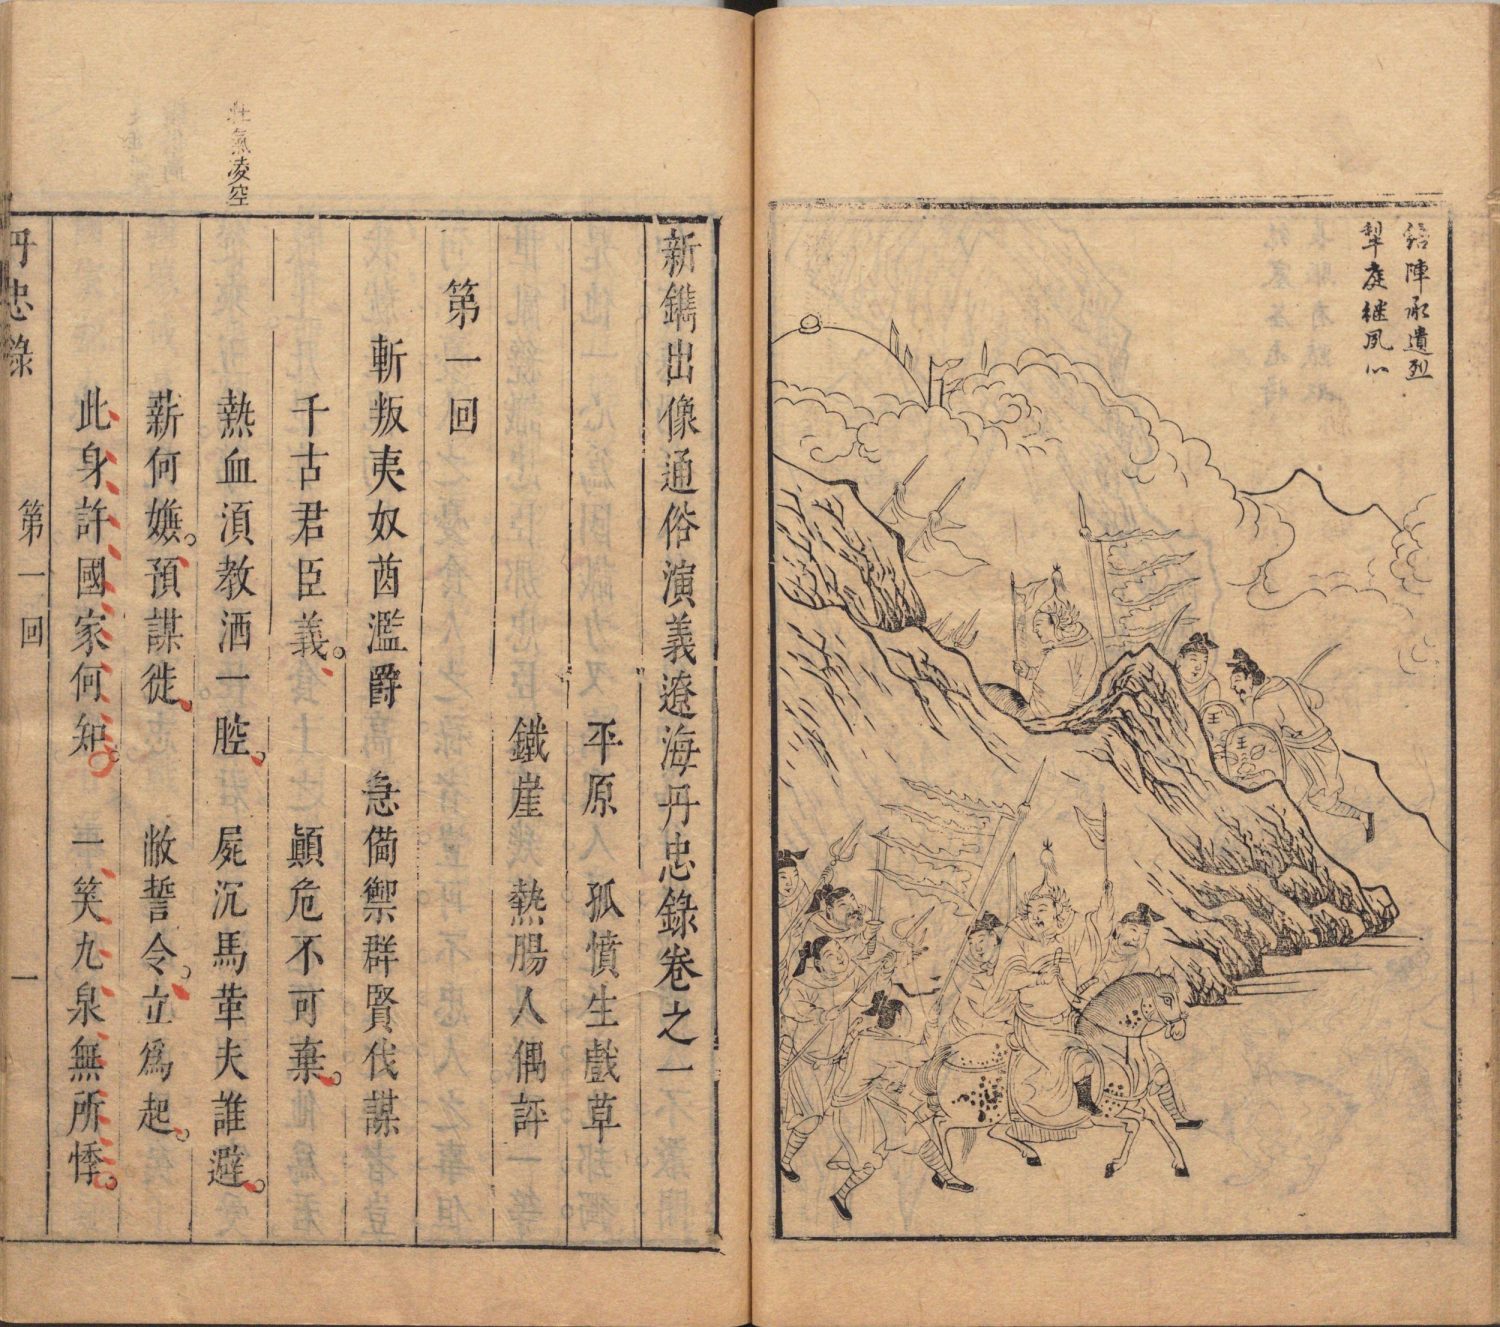 臨陣承遺烈
犁庭继夙心
新鐫出像通俗演義遼海丹忠錄卷之一
平原 孤憤生戲草
鐵崖 熱腸人偶評
第一回
斬叛夷奴酋濫爵 急備禦群賢伐謀
千古君臣義。顛危不可棄。
熱血湏教洒一腔。屍沉馬革夫誰避。
薪何嫵。預謀徙。敝誓令。立爲起。
此身許國家何知。一笑九泉無所悸。
壯氣凌空
丹忠錄 第一回 一